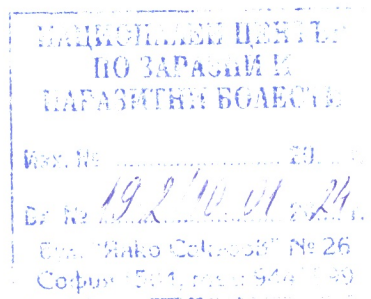 НАЦИОНАЛЕН ЦЕНТЪР
ПО ЗАРАЗНИ И
ПАРАЗИТНИ БОЛЕСТИ
Изх. № ........................ 20
Вх. № 192/10.01 2024 г.
бул. "Янко Сакъзов" № 26
София 1504,